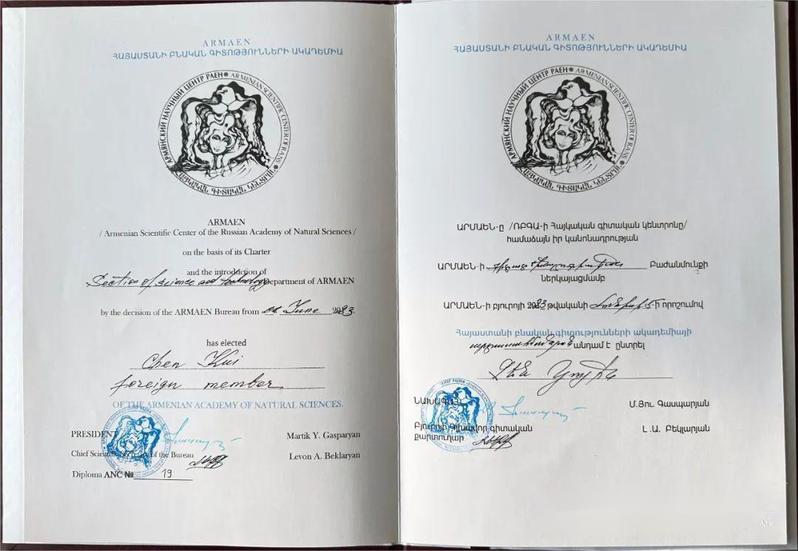 ARMAEN
ՀԱՅԱՍՏԱՆԻ ԲՆԱԿԱՆ ԳԻՏՈՒԹՅՈՒՆՆԵՐԻ ԱԿԱԴԵՄԻԱ
АРМЯНСКИЙ НАУЧНЫЙ ЦЕНТР РАЕН ARMENIAN SCIENTIFIC CENTER OF RANS
ՀԱՅԿԱԿԱՆ ԳԻՏԱԿԱՆ ԿԵՆՏՐՈՆ
ARMAEN
/ Armenian Scientific Center of the Russian Academy of Natural Sciences /
on the basis of its Charter
and the introduction of
Section of science and technology Department of ARMAEN
by the decision of the ARMAEN Bureau from June
has elected
Chen Kui
foreign member
OF THE ARMENIAN ACADEMY OF NATURAL SCIENCES.
PRESIDENT Martik Y. Gasparyan
Chief Scientific of the Bureau Levon A. Beklaryan
Diploma ANC № 19
ARMAEN
ՀԱՅԱՍՏԱՆԻ ԲՆԱԿԱՆ ԳԻՏՈՒԹՅՈՒՆՆԵՐԻ ԱԿԱԴԵՄԻԱ
АРМЯНСКИЙ НАУЧНЫЙ ЦЕНТР РАЕН ARMENIAN SCIENTIFIC CENTER OF RANS
ՀԱՅԿԱԿԱՆ ԳԻՏԱԿԱՆ ԿԵՆՏՐՈՆ
ԱՐՄԱԵՆ-ը /ՌԲԳԱ-ի Հայկական գիտական կենտրոնը/
համաձայն իր կանոնադրության
ԱՐՄԱԵՆ-ի Բաժանմունքի
ներկայացմամբ
ԱՐՄԱԵՆ-ի բյուրոյի թվականի որոշումով
Հայաստանի բնական գիտությունների ակադեմիայի
անդամ է ընտրել
Չեն
ՆԱԽԱԳԱՀ Մ.Յու. Գասպարյան
Բյուրոյի Գլխավոր գիտական Լ .Ա. Բեկլարյան
քարտուղար